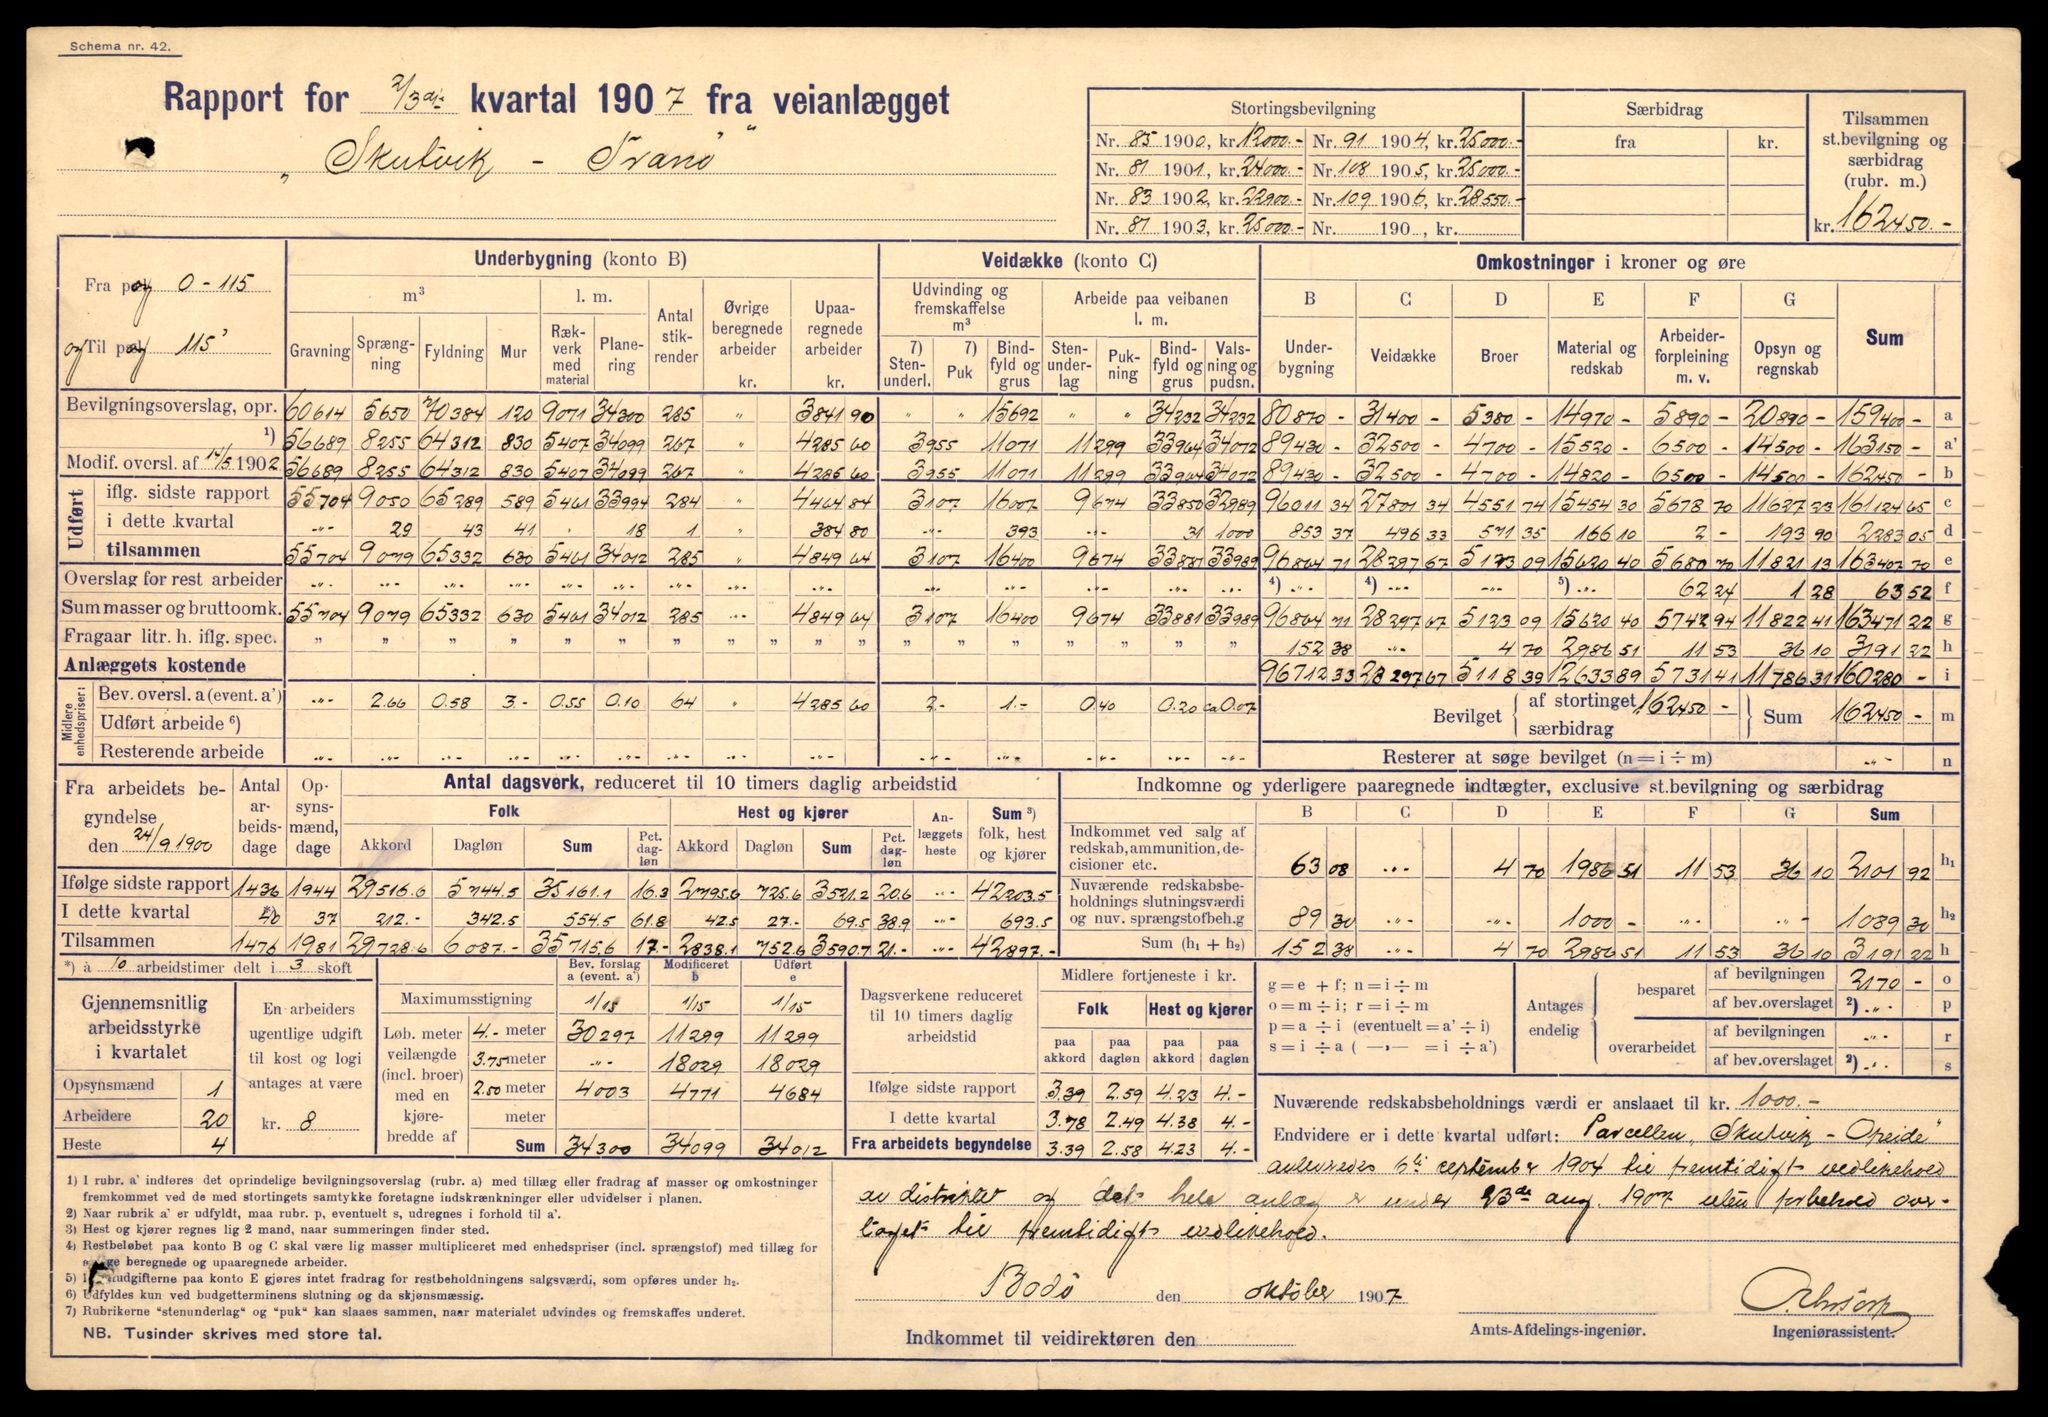 Schema nr. 42.
Rapport for 2/3dje kvartal 1907 fra veianlægget
„Skutvik - Tranö"
Stortingsbevilgning Særbidrag Tilsammen st.bevilgning og særbidrag (rubr. m.)
Nr. 85 1900, kr. 12000.- Nr. 91 1904, kr. 25000.- fra kr.
Nr. 81 1901, kr. 24000.- Nr. 108 1905, kr. 25000.-
Nr. 83 1902, kr. 22900.- Nr. 109 1906, kr. 28550.-
Nr. 81 1903, kr. 25000.- Nr. 190 , kr. kr. 162450.-
Fra pæl 0 - 115
og Til pæl 115
Underbygning (konto B) Veidække (konto C) Omkostninger i kroner og øre
m³ l. m. Antal stikrender Øvrige beregnede arbeider kr. Upaaregnede arbeider kr.
Gravning Sprængning Fyldning Mur Rækverk med material Planering
Udvinding og fremskaffelse m³ Arbeide paa veibanen l. m.
7) Stenunderl. 7) Puk Bindfyld og grus Stenunderlag Pukning Bindfyld og grus Valsning og pudsn.
B Underbygning C Veidække D Broer E Material og redskab F Arbeiderforpleining m. v. G Opsyn og regnskab Sum
Bevilgningsoverslag, opr. 60614 5650 70384 120 9071 34300 285 " 3841 90 " " 15692 " " 34232 34232 80870 - 31400 - 5380 - 14970 - 5890 - 20890 - 159400 - a
1) 56689 8255 64312 830 5407 34099 267 " 4285 60 3955 11071 11299 33964 34072 89430 - 32500 - 4700 - 15520 - 6500 - 14500 - 163150 - a'
Modif. oversl. af 14/5 1902 56689 8255 64312 830 5407 34099 267 " 4285 60 3955 11071 11299 33964 34072 89430 - 32500 - 4700 - 14820 - 6500 - 14500 - 162450 - b
Udført
iflg. sidste rapport 55704 9050 65289 589 5461 33994 284 " 4464 84 3107 16007 9674 33850 32989 96011 34 27801 34 4551 74 15454 30 5678 70 11627 23 161124 65 c
i dette kvartal -"- 29 43 41 18 1 " 384 80 -"- 393 -"- 31 1000 853 37 496 33 571 35 166 10 2 - 193 90 2283 05 d
tilsammen 55704 9079 65332 630 5461 34012 285 " 4849 64 3107 16400 9674 33881 33989 96864 71 28297 67 5123 09 15620 40 5680 70 11821 13 163407 70 e
Overslag for rest arbeider -"- 4) -"- 4) -"- -"- 5) -"- 62 24 1 28 63 52 f
Sum masser og bruttoomk. 55704 9079 65332 630 5461 34012 285 -"- 4849 64 3107 16400 9674 33881 33989 96864 71 28297 67 5123 09 15620 40 5742 94 11822 41 163471 22 g
Fragaar litr. h. iflg. spec. " 152 38 -"- 4 70 2986 51 11 53 36 10 3191 22 h
Anlæggets kostende 96712 33 28297 67 5118 39 12633 89 5731 41 11786 31 160280 - i
Midlere enhedspriser:
Bev. oversl. a (event. a') -"- 2.66 0.58 3.- 0.55 0.10 64 " 4285 60 2.- 1.- 0.40 0.20 ca 0.07
Udført arbeide 6)
Resterende arbeide -"-
Bevilget af stortinget 162450 - særbidrag Sum 162450 - m
Resterer at søge bevilget (n = i ÷ m) -"- n
Fra arbeidets begyndelse den 24/9 1900
Antal arbeidsdage Opsynsmænd, dage
Antal dagsverk, reduceret til 10 timers daglig arbeidstid
Folk Hest og kjører Anlæggets heste Sum 3) folk, hest og kjører
Akkord Dagløn Sum Pct. dagløn Akkord Dagløn Sum Pct. dagløn
Ifølge sidste rapport 1436 1944 29516.6 5744.5 35161.1 16.3 2795.6 725.6 3521.2 20.6 -"- 42203.5
I dette kvartal *)40 37 212.- 342.5 554.5 61.8 42.5 27.- 69.5 38.9 -"- 693.5
Tilsammen 1476 1981 29728.6 6087.- 35715.6 17.- 2838.1 752.6 3590.7 21.- -"- 42897.-
Indkomne og yderligere paaregnede indtægter, exclusive st.bevilgning og særbidrag
B C D E F G Sum
Indkommet ved salg af redskab, ammunition, decisioner etc. 63 08 -"- 4 70 1986 51 11 53 36 10 2101 92 h₁
Nuværende redskabsbeholdnings slutningsværdi og nuv. sprængstofbeh.g 89 30 -"- -"- 1000 - -"- -"- 1089 30 h₂
Sum (h₁ + h₂) 152 38 -"- 4 70 2986 51 11 53 36 10 3191 22 h
*) à 10 arbeidstimer delt i 3 skift
Gjennemsnitlig arbeidsstyrke i kvartalet
Opsynsmænd 1
Arbeidere 20
Heste 4
En arbeiders ugentlige udgift til kost og logi antages at være
kr. 8
Bev. forslag a (event. a') Modificeret b Udført e
Maximumsstigning 1/15 1/15 1/15
Løb. meter veilængde (incl. broer) med en kjørebredde af
4.- meter 30297 11299 11299
3.75 meter -"- 18029 18029
2.50 meter 4003 4771 4684
meter
Sum 34300 34099 34012
Dagsverkene reduceret til 10 timers daglig arbeidstid
Midlere fortjeneste i kr.
Folk Hest og kjører
paa akkord paa dagløn paa akkord paa dagløn
Ifølge sidste rapport 3.39 2.59 4.23 4.-
I dette kvartal 3.78 2.49 4.38 4.-
Fra arbeidets begyndelse 3.39 2.58 4.23 4.-
g = e + f; n = i ÷ m
o = m ÷ i; r = i ÷ m
p = a ÷ i (eventuelt = a' ÷ i)
s = i ÷ a ( —›— = i ÷ a')
Antages endelig
besparet af bevilgningen 2170 - o
af bev.overslaget 2) -"- p
overarbeidet af bevilgningen -"- r
af bev.overslaget 2) -"- s
Nuværende redskabsbeholdnings værdi er anslaaet til kr. 1000.-
Endvidere er i dette kvartal udført: Parcellen „Skutvik - Opeide"
6te september 1904 til fremtidigt vedlikehold
av distriktet og det hele anlæg er under 23de aug. 1907 uten forbehold over-
taget til fremtidigt vedlikehold.
Bodö den oktober 1907
Indkommet til veidirektøren den
Amts-Afdelings-ingeniør.
Ingeniørassistent.
1) I rubr. a' indføres det oprindelige bevilgningsoverslag (rubr. a) med tillæg eller fradrag af masser og omkostninger
fremkommet ved de med stortingets samtykke foretagne indskrænkninger eller udvidelser i planen.
2) Naar rubrik a' er udfyldt, maa rubr. p, eventuelt s, udregnes i forhold til a'.
3) Hest og kjører regnes lig 2 mand, naar summeringen finder sted.
4) Restbeløbet paa konto B og C skal være lig masser multipliceret med enhedspriser (incl. sprængstof) med tillæg for
øvrige beregnede og upaaregnede arbeider.
5) I udgifterne paa konto E gjøres intet fradrag for restbeholdningens salgsværdi, som opføres under h₂.
6) Udfyldes kun ved budgetterminens slutning og da skjønsmæssig.
7) Rubrikerne "stenunderlag" og "puk" kan slaaes sammen, naar materialet udvindes og fremskaffes underet.
NB. Tusinder skrives med store tal.